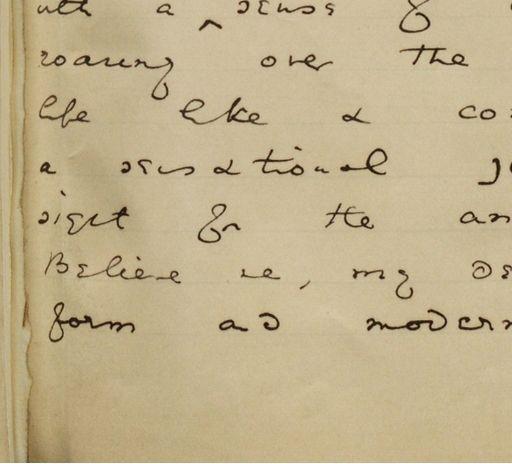 with a sense of
roaring over the
life like a co
a sensational jo
sight for the an
Believe me, my de
form and modern